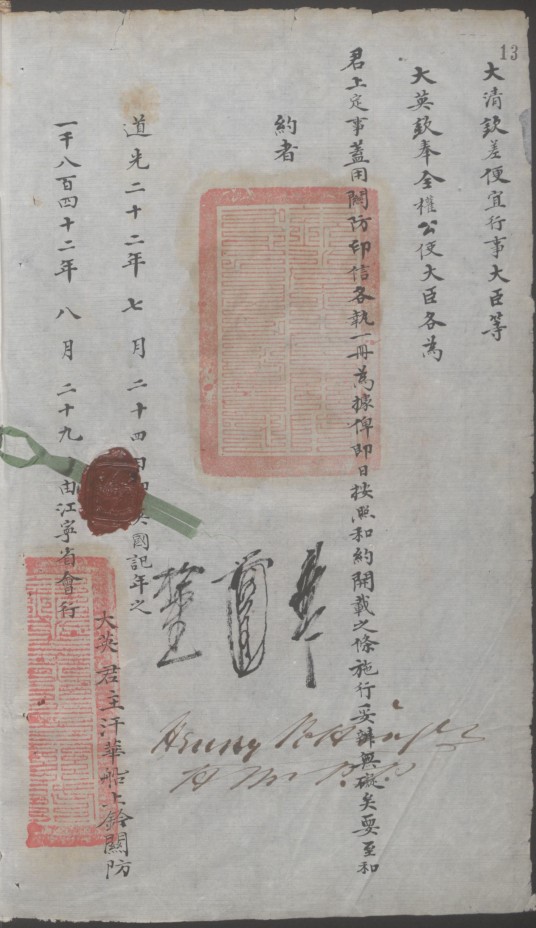 13
大清欽差便宜行事大臣等
大英欽奉全權公使大臣各為
君上定事蓋用關防印信各執一冊為據俾即日按照和約開載之條施行妥辦無礙矣要至和
約者
道光二十二年七月二十四日即英國記年之
一千八百四十二年八月二十九日由江寧省會行
大英君主汗華船上鈐關防
Henry Pottinger